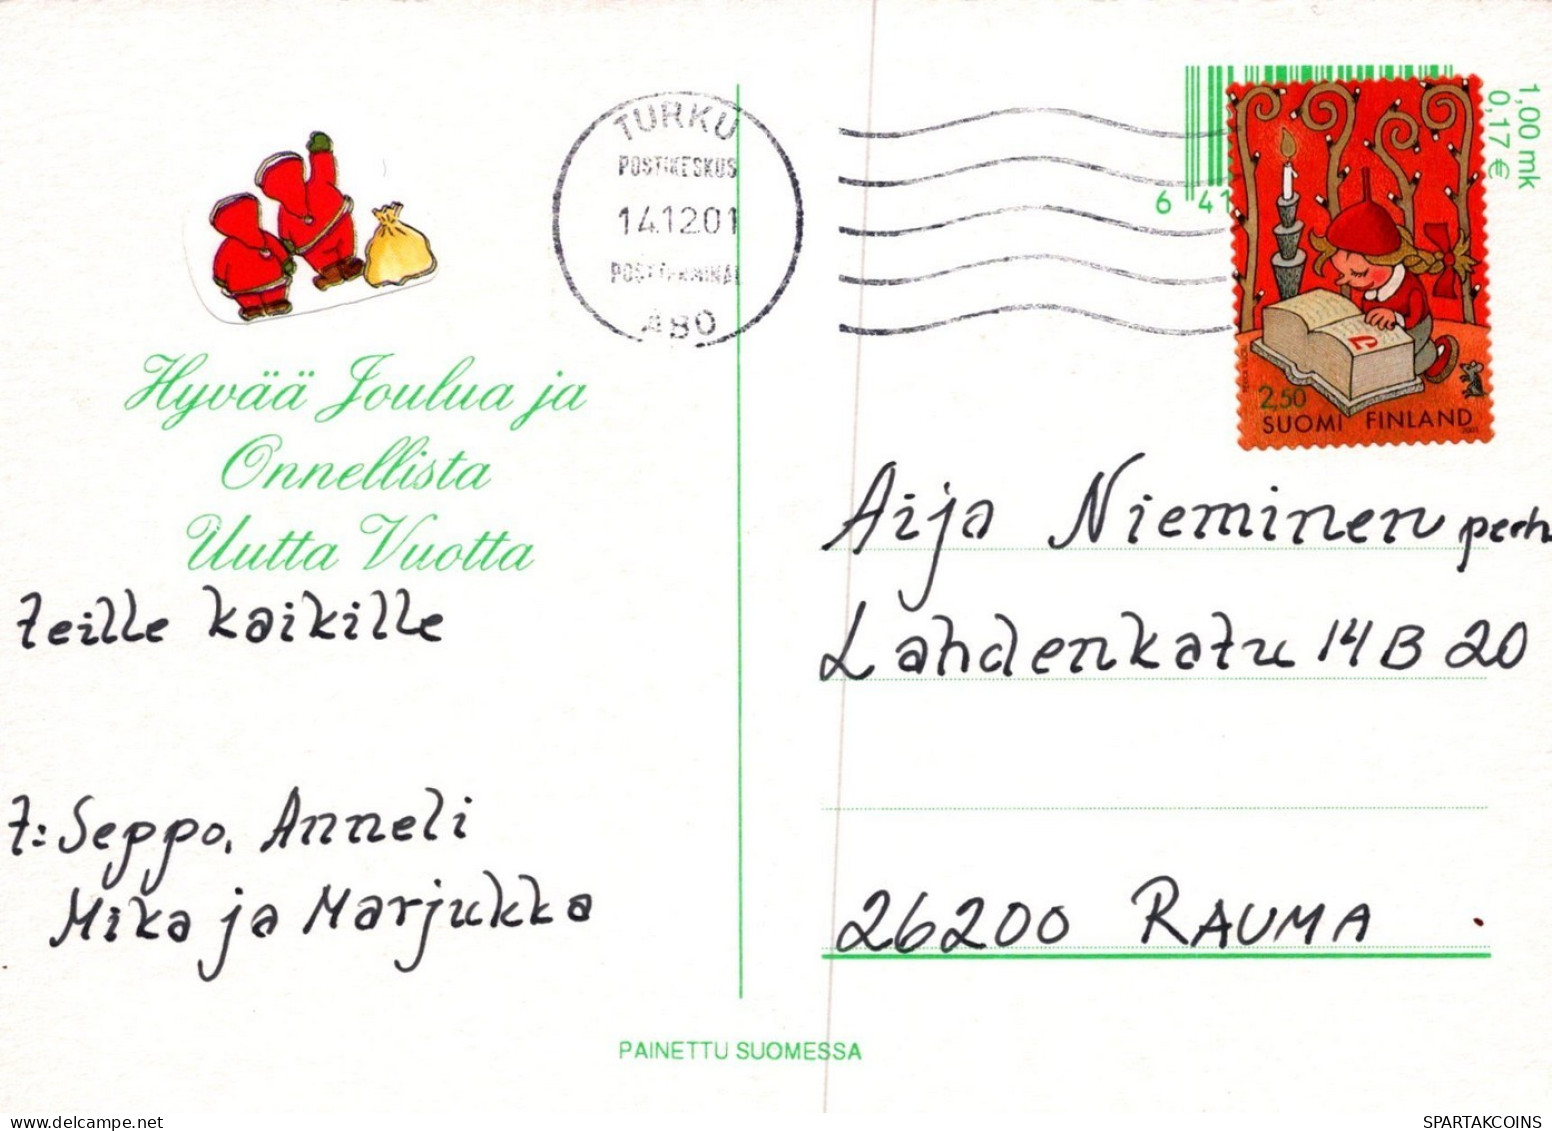 TURKU
POSTIKESKUS
14.12.01
POSTTERMINAL
ÅBO
1,00 mk
0,17 €
6 41
2,50
SUOMI FINLAND
2001
Hyvää Joulua ja
Onnellista
Uutta Vuotta
teille kaikille
t: Seppo, Anneli
Mika ja Marjukka
Aija Nieminen perh
Lahdenkatu 14 B 20
26200 RAUMA
PAINETTU SUOMESSA
SPARTAKCOINS